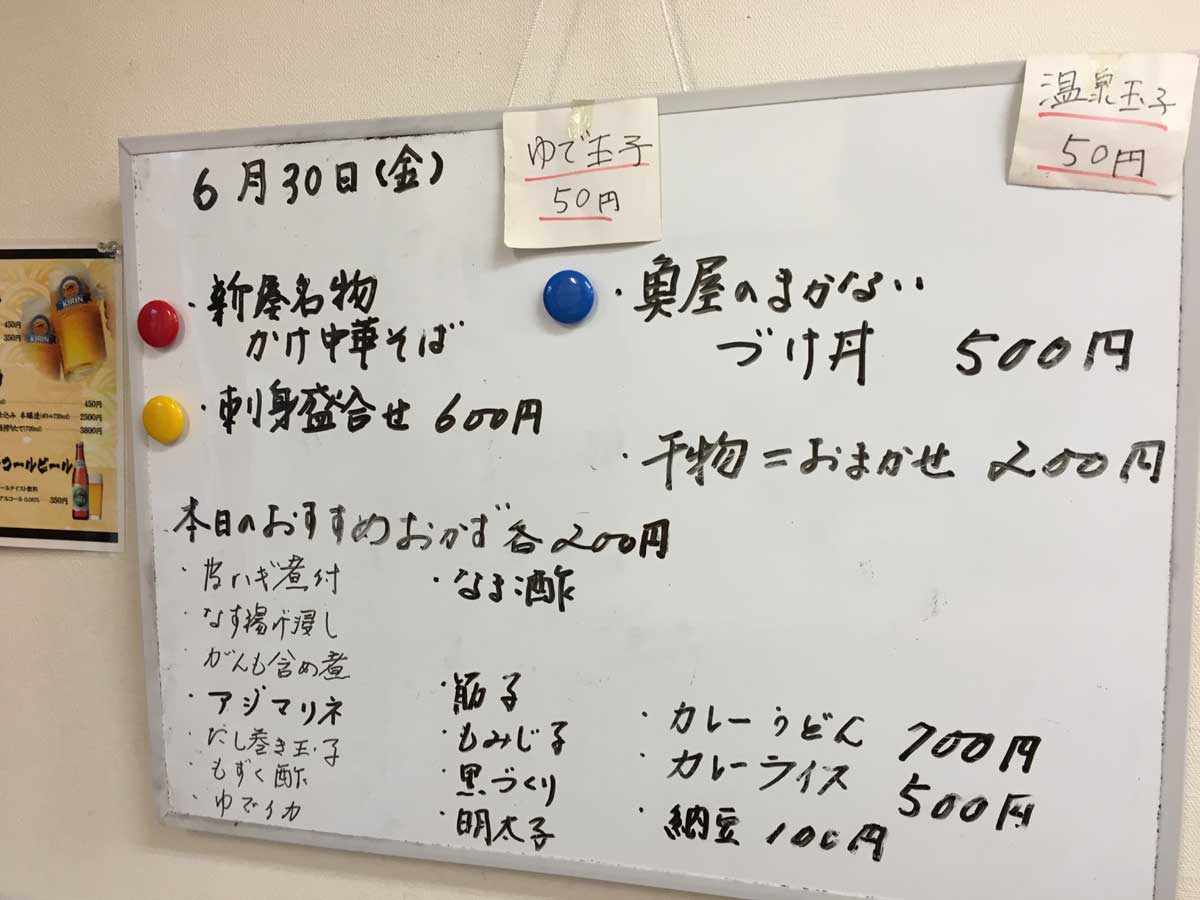 ゆで玉子
50円
温泉玉子
50円
6月30日(金)
・新屋名物
かけ中華そば
・刺身盛合せ 600円
・魚屋のまかない
づけ丼 500円
・干物=おまかせ 200円
本日のおすすめおかず各200円
・皮ハギ煮付
・なす揚げ浸し
・がんも含め煮
・アジマリネ
・だし巻き玉子
・もずく酢
・ゆでイカ
・なま酢
・筋子
・もみじ子
・黒づくり
・明太子
・カレーうどん 700円
・カレーライス 500円
・納豆 100円
KIRIN
KIRIN
450円
350円
450円
2500円
3800円
コールビール
ールテイスト飲料
アルコール 0.00% 350円